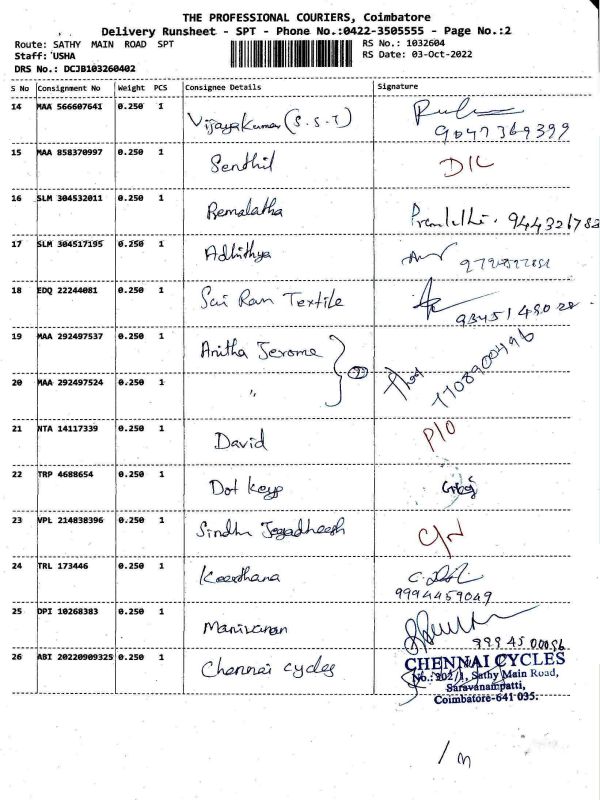 THE PROFESSIONAL COURIERS, Coimbatore
Delivery Runsheet - SPT - Phone No.:0422-3505555 - Page No.:2
Route: SATHY MAIN ROAD SPT
RS No.: 1032604
Staff: USHA
RS Date: 03-Oct-2022
DRS No.: DCJB103260402
S No Consignment No Weight PCS Consignee Details Signature
14 MAA 566607641 0.250 1 Vijayakumar (S.S.T)
9047369399
15 MAA 858370997 0.250 1 Senthil D/L
16 SLM 304532011 0.250 1 Remalatha
17 SLM 304517195 0.250 1 Adhithya
18 EDQ 22244081 0.250 1 Sai Ram Textile
19 MAA 292497537 0.250 1 Anitha Jerome
20 MAA 292497524 0.250 1 "
7708900496
21 NTA 14117339 0.250 1 David P/O
22 TRP 4688654 0.250 1 Dot Keys
23 VPL 214838396 0.250 1 Sindhu Jegadheesh C/N
24 TRL 173446 0.250 1 Keerthana
9994459049
25 DPI 10268383 0.250 1 Manivanan
26 ABI 20220909325 0.250 1 Chennai Cycles
CHENNAI CYCLES
No.:202/1, Sathy Main Road,
Saravanampatti,
Coimbatore-641 035.